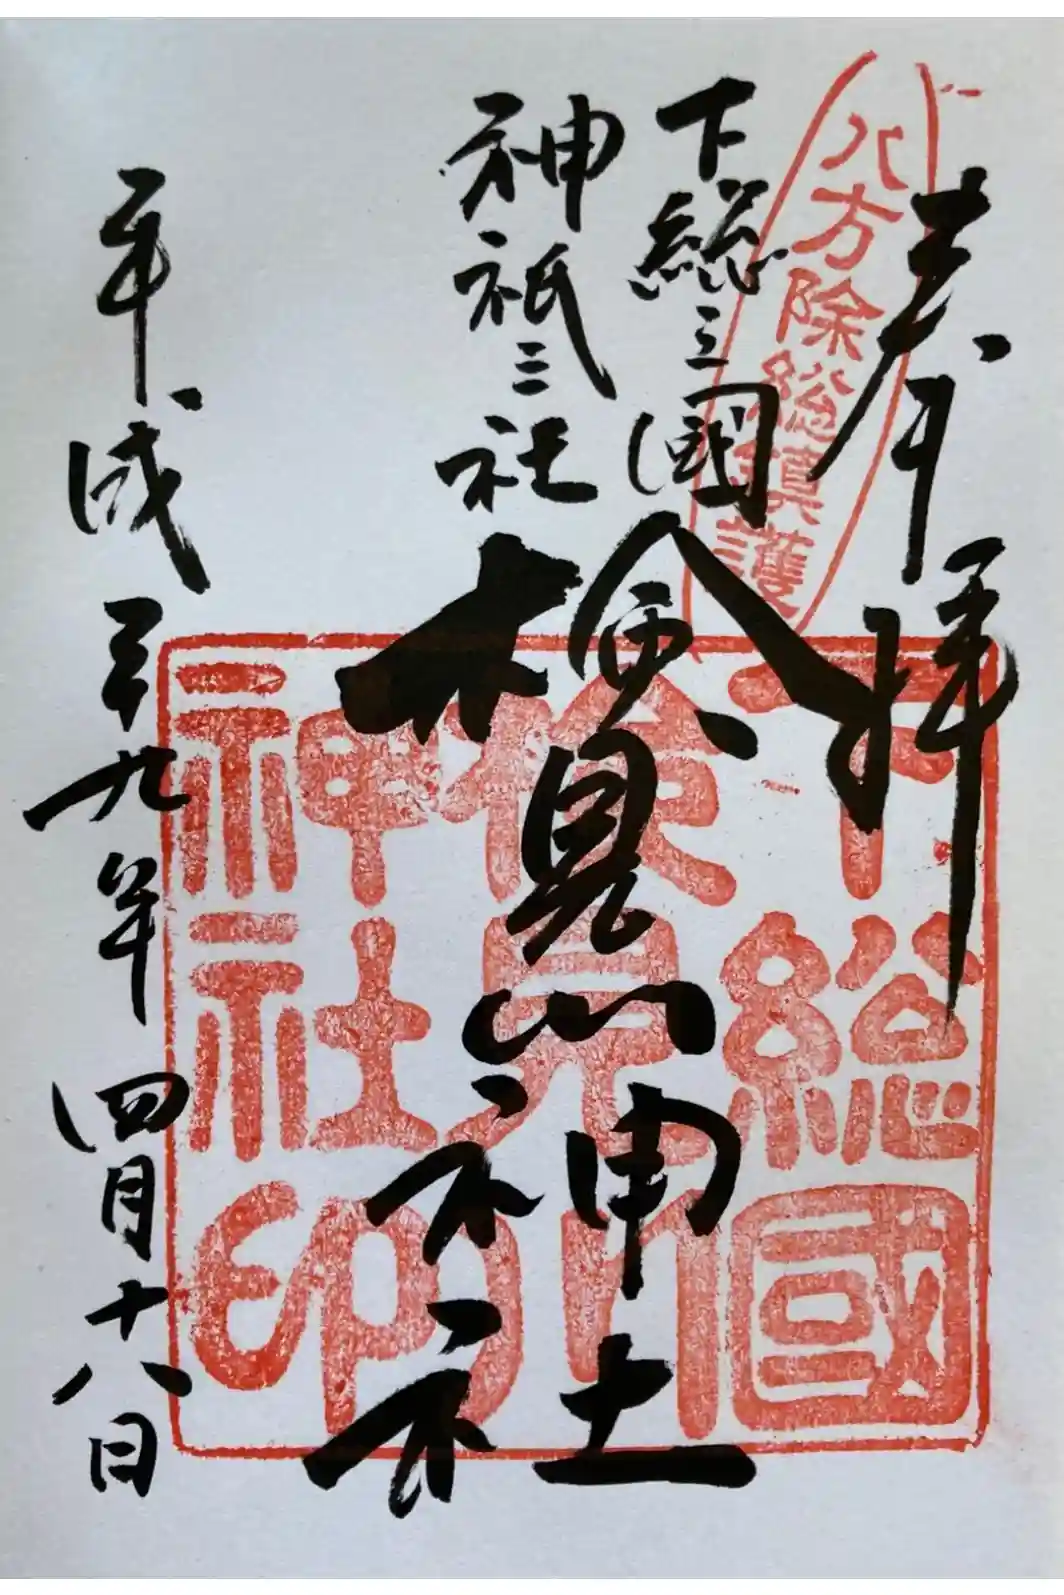 奉拝
八方除総鎮護
下総三國
神祇三社
検見川神社
下総國
検見川
神社印
平成二九年四月十八日